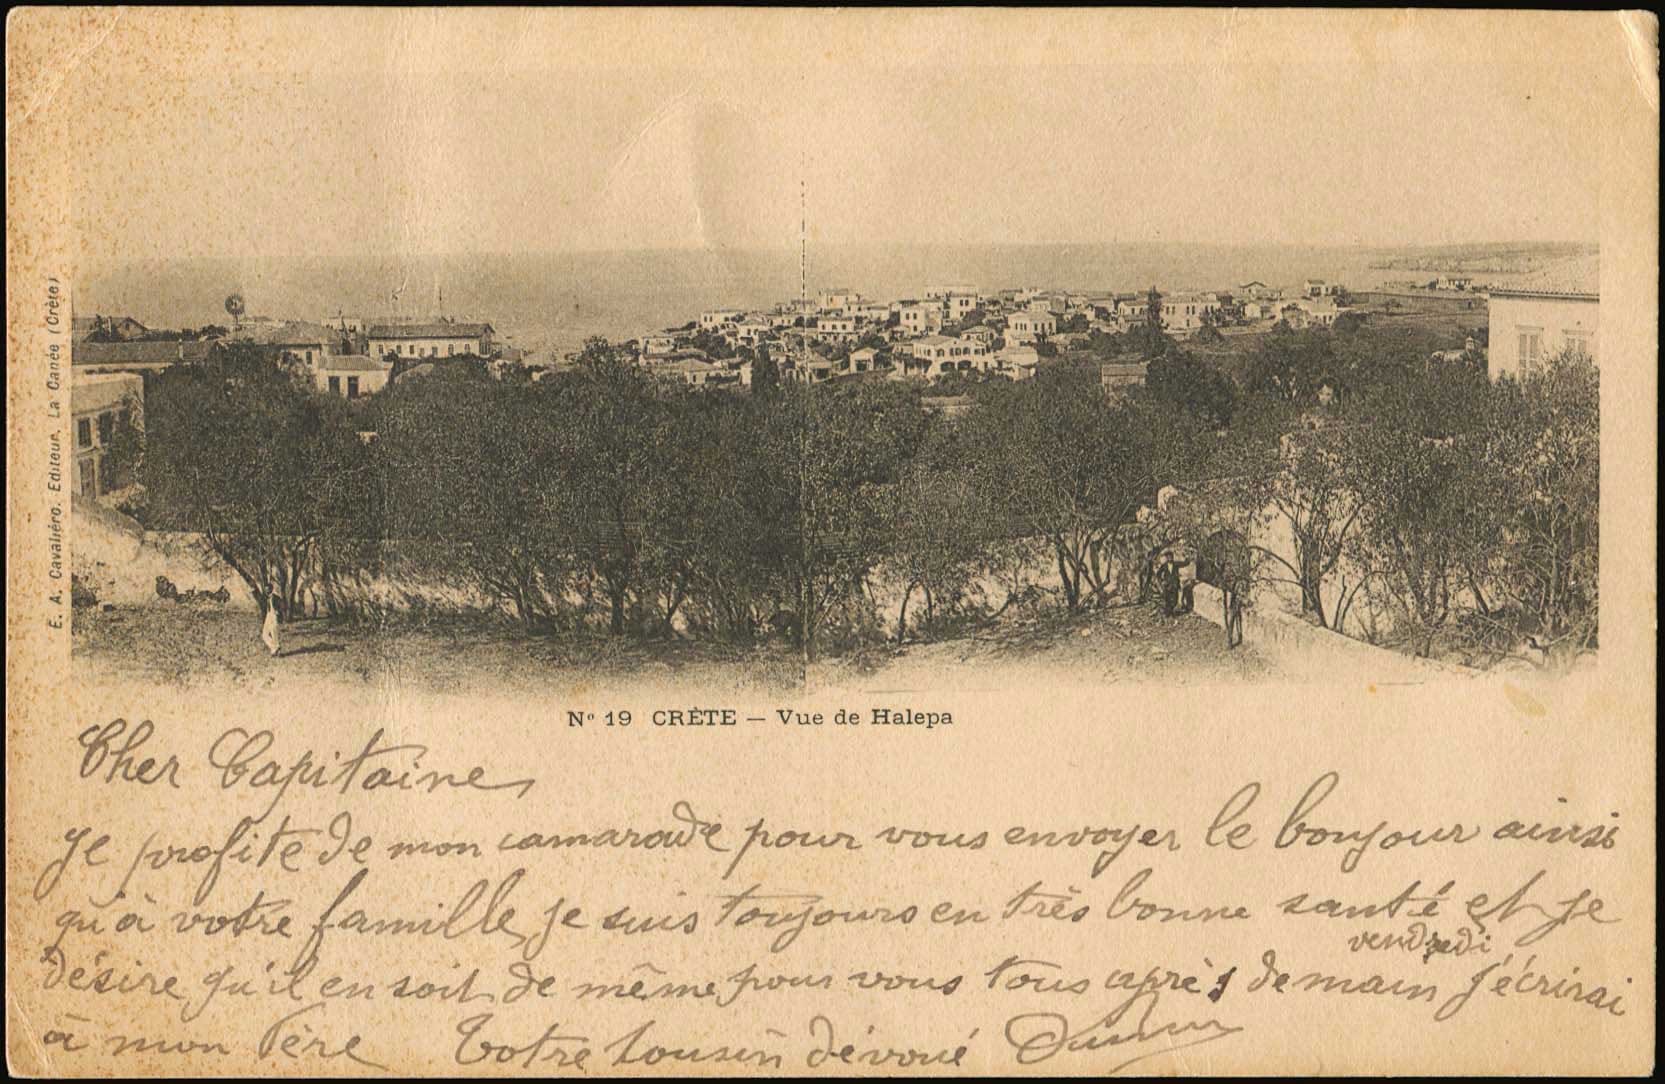 E. A. Cavaliéro. Editeur. La Canée (Crète)
Nº 19 CRÈTE — Vue de Halepa
Cher Capitaine
Je profite de mon camarade pour vous envoyer le bonjour ainsi
qu'à votre famille, je suis toujours en très bonne santé et je
vendredi
désire qu'il en soit de même pour vous tous après demain j'écrirai
à mon Père Votre Cousin dévoué